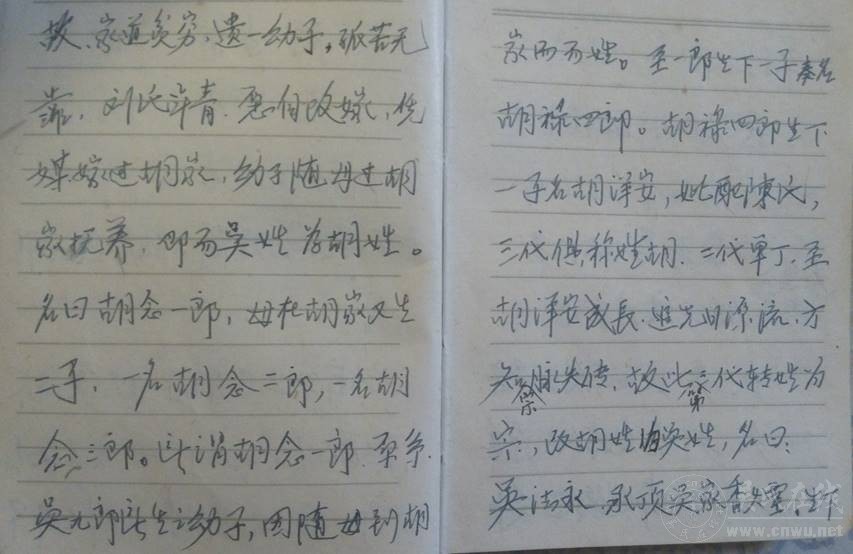 故、家道贫穷,遗一幼子,孤苦无
靠,刘氏年青,愿自改嫁,凭
媒嫁过胡家,幼子随母过胡
家抚养,即而吴姓为胡姓。
名曰胡念一郎,母在胡家又生
二子,一名胡念二郎,一名胡
念三郎。此谓胡念一郎,系
吴九郎所生之幼子,因随母到胡
家而为姓。至一郎生下一子奏名
胡禄四郎。胡禄四郎生下
一子名胡洋安,妣配陳氏,
三代俱称姓胡,二代单丁,至
胡洋安成長,追究日源流,方
知宗脉失传,故此第三代转姓为
宗,改胡姓为吴姓,名曰:
吴法永,永顶吴家香火灵,生下
www.cnwu.net